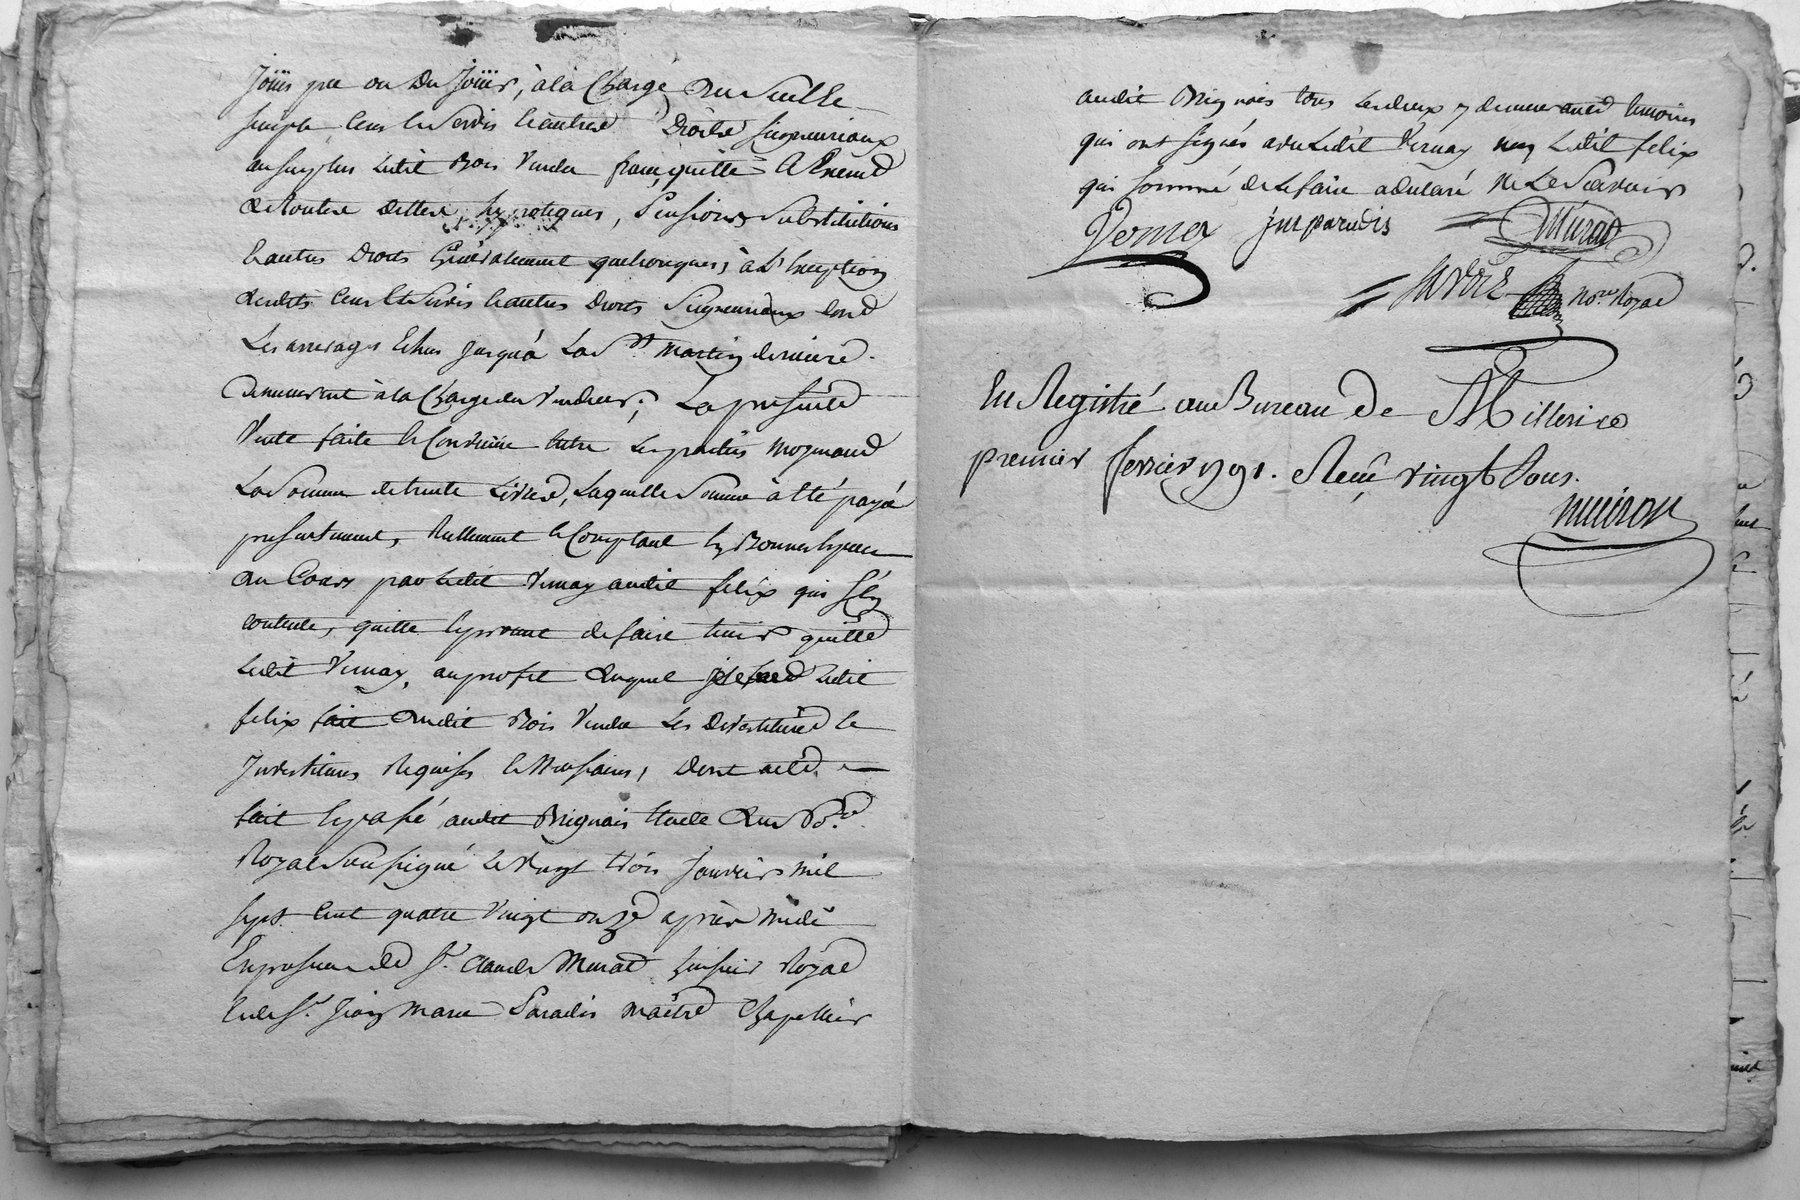 Joüir pu ou Du Joüir, à la Charge du
simple Cens & Servis & autres Droits seigneuriaux
au surplus ledit Bois Vendu franc, quitte & Exempt
de toutes Dettes, hypoteques, Pensions, Substitutions
& autres Droits Généralement quelconques, à l'Exception
desdits Cens & Servis & autres Droits Seigneuriaux dont
Les arrerages Echus jusqu'à La St martin derniere
demeurent à la Charge du Vendeur; La presente
Vente faite & Convenue Entre Les parties moyenand
La Somme de trente Livres, Laquelle Somme a été payée
presentement, Réellement & Comptant En Bonnes Especes
au Cours par Ledit Vernay audit felix qui s'en
contente, quitte & promet de faire tenir quitte
Ledit Vernay, au profit duquel Ledit
felix fait dudit Bois Vendu Les Devestitures &
Investitures Requises & Necessaires, Dont acte.
fait & passé audit Brignais Etude du No.re
Royal Soussigné Le Vingt trois Janvier mil
sept Cent quatre Vingt onze après midi
En presence de Sr. Claude Murat huissier Royal
& de Sr. Jean Marie Paradis maître Chapellier
audit Brignais tous Les deux y demeurants temoins
qui ont signés avec Ledit Vernay non Ledit felix
qui sommé de Le faire a declaré ne Le Scavoir
Vernay jm paradis Murat
No.re Royal
En Registré au Bureau de Millerie
premier fevrier 1791. Recu vingt Sous.